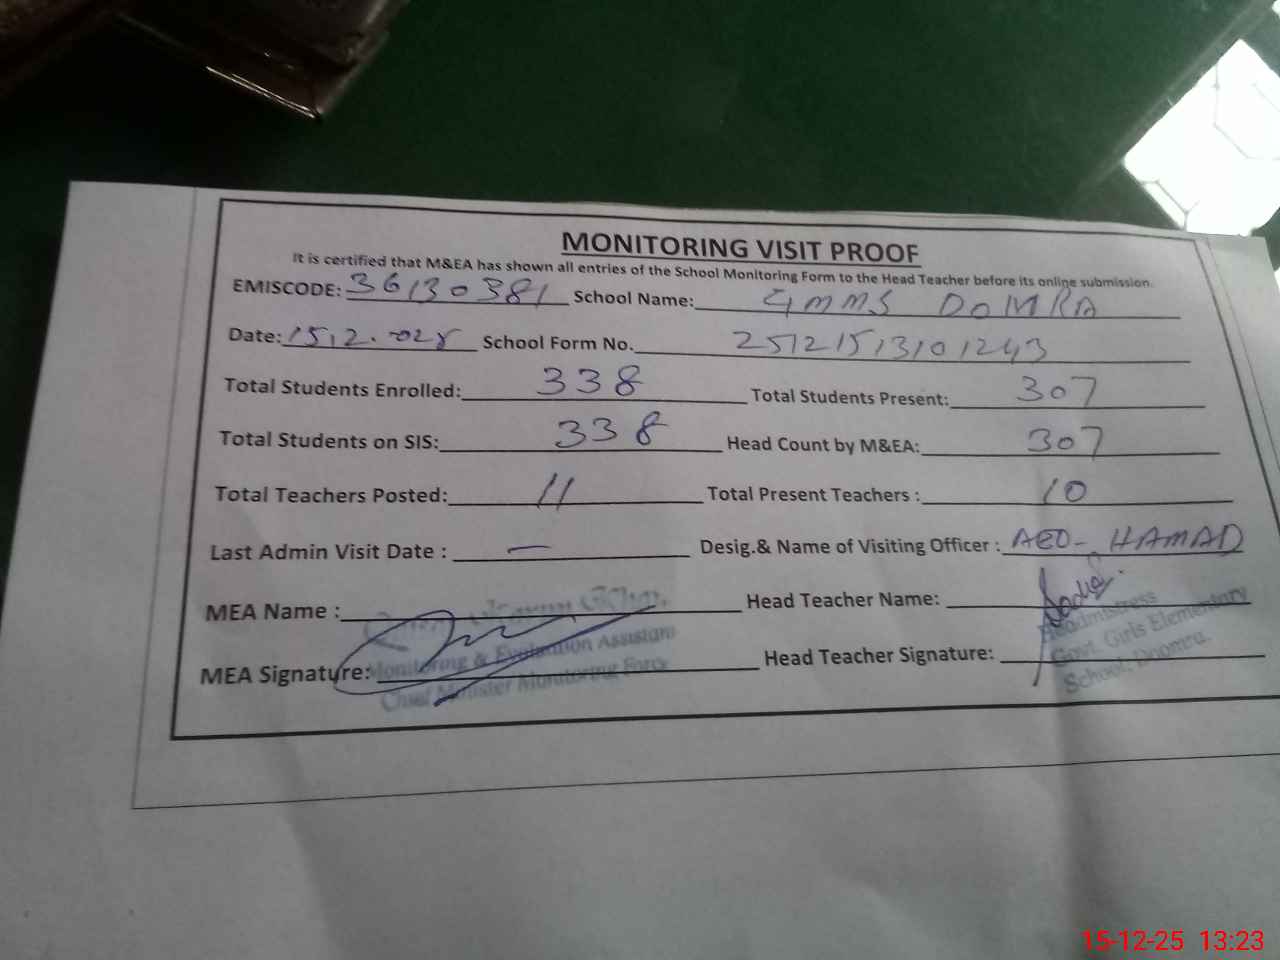 MONITORING VISIT PROOF
It is certified that M&EA has shown all entries of the School Monitoring Form to the Head Teacher before its online submission.
EMISCODE: 36130381 School Name: GMMS DOMRA
Date: 15,2.-025 School Form No. 2512151310 1243
Total Students Enrolled: 338 Total Students Present: 307
Total Students on SIS: 338 Head Count by M&EA: 307
Total Teachers Posted: 11 Total Present Teachers : 10
Last Admin Visit Date : — Desig.& Name of Visiting Officer : AEO- HAMAD
MEA Name : Head Teacher Name:
MEA Signature: Head Teacher Signature:
Monitoring & Evaluation Assistant
Chief Minister Monitoring Force
Headmistress
Govt. Girls Elementary
School, Doomra.
15-12-25 13:23